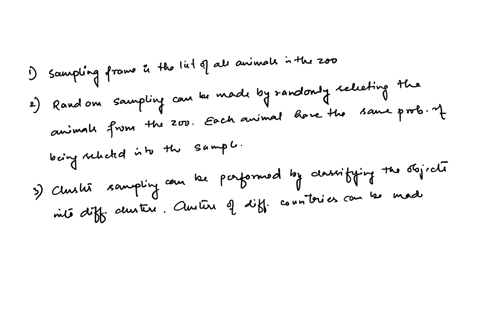 1) Sampling frame is the list of all animals in the zoo
2) Random sampling can be made by randomly selecting the
animals from the zoo. Each animal have the same prob. of
being selected into the sample.
3) Cluster sampling can be performed by classifying the objects
into diff. clusters. Clusters of diff. countries can be made